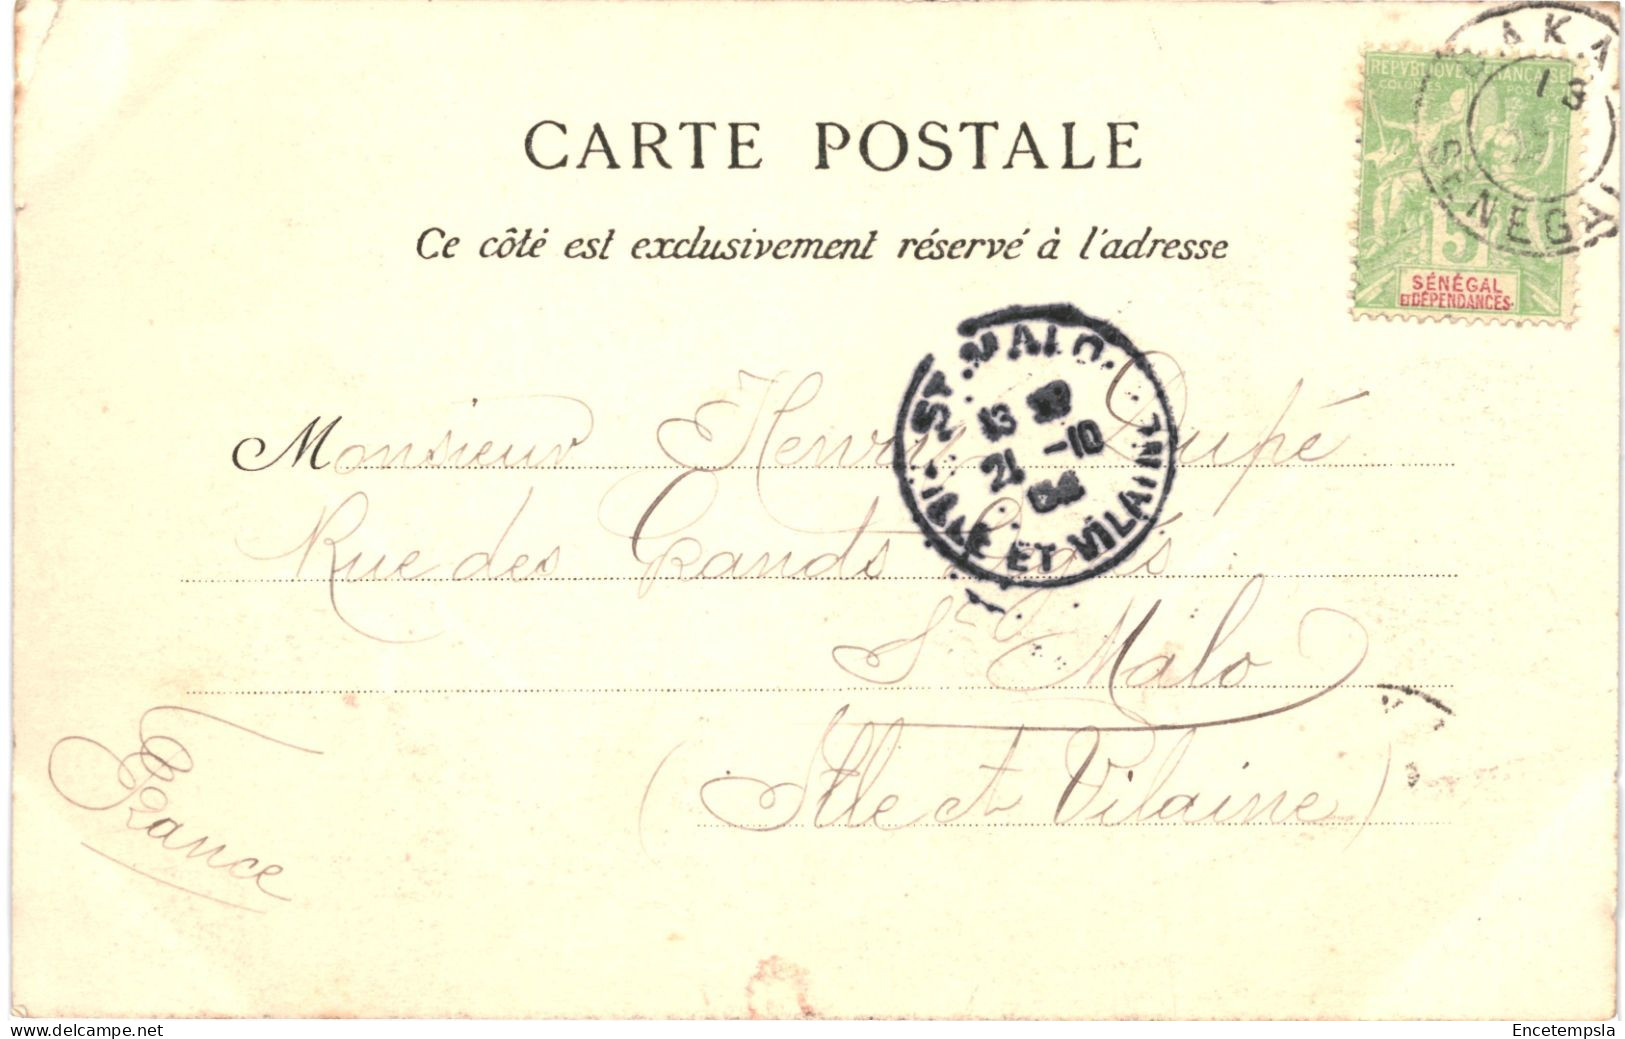 CARTE POSTALE
Ce côté est exclusivement réservé à l'adresse
REPVBLIQVE FRANÇAISE
COLONIES POSTES
5
SÉNÉGAL
ET DÉPENDANCES
DAKAR
SENEGAL
ST MALO
13
21 -10
ILLE ET VILAINE
Monsieur Henri Dupé
Rue des Grands
St Malo
(Ille et Vilaine)
France
delcampe.net
Encetempsla